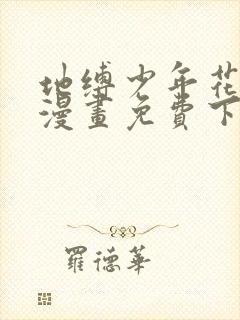 地缚少年花
漫畫免費下
羅德華